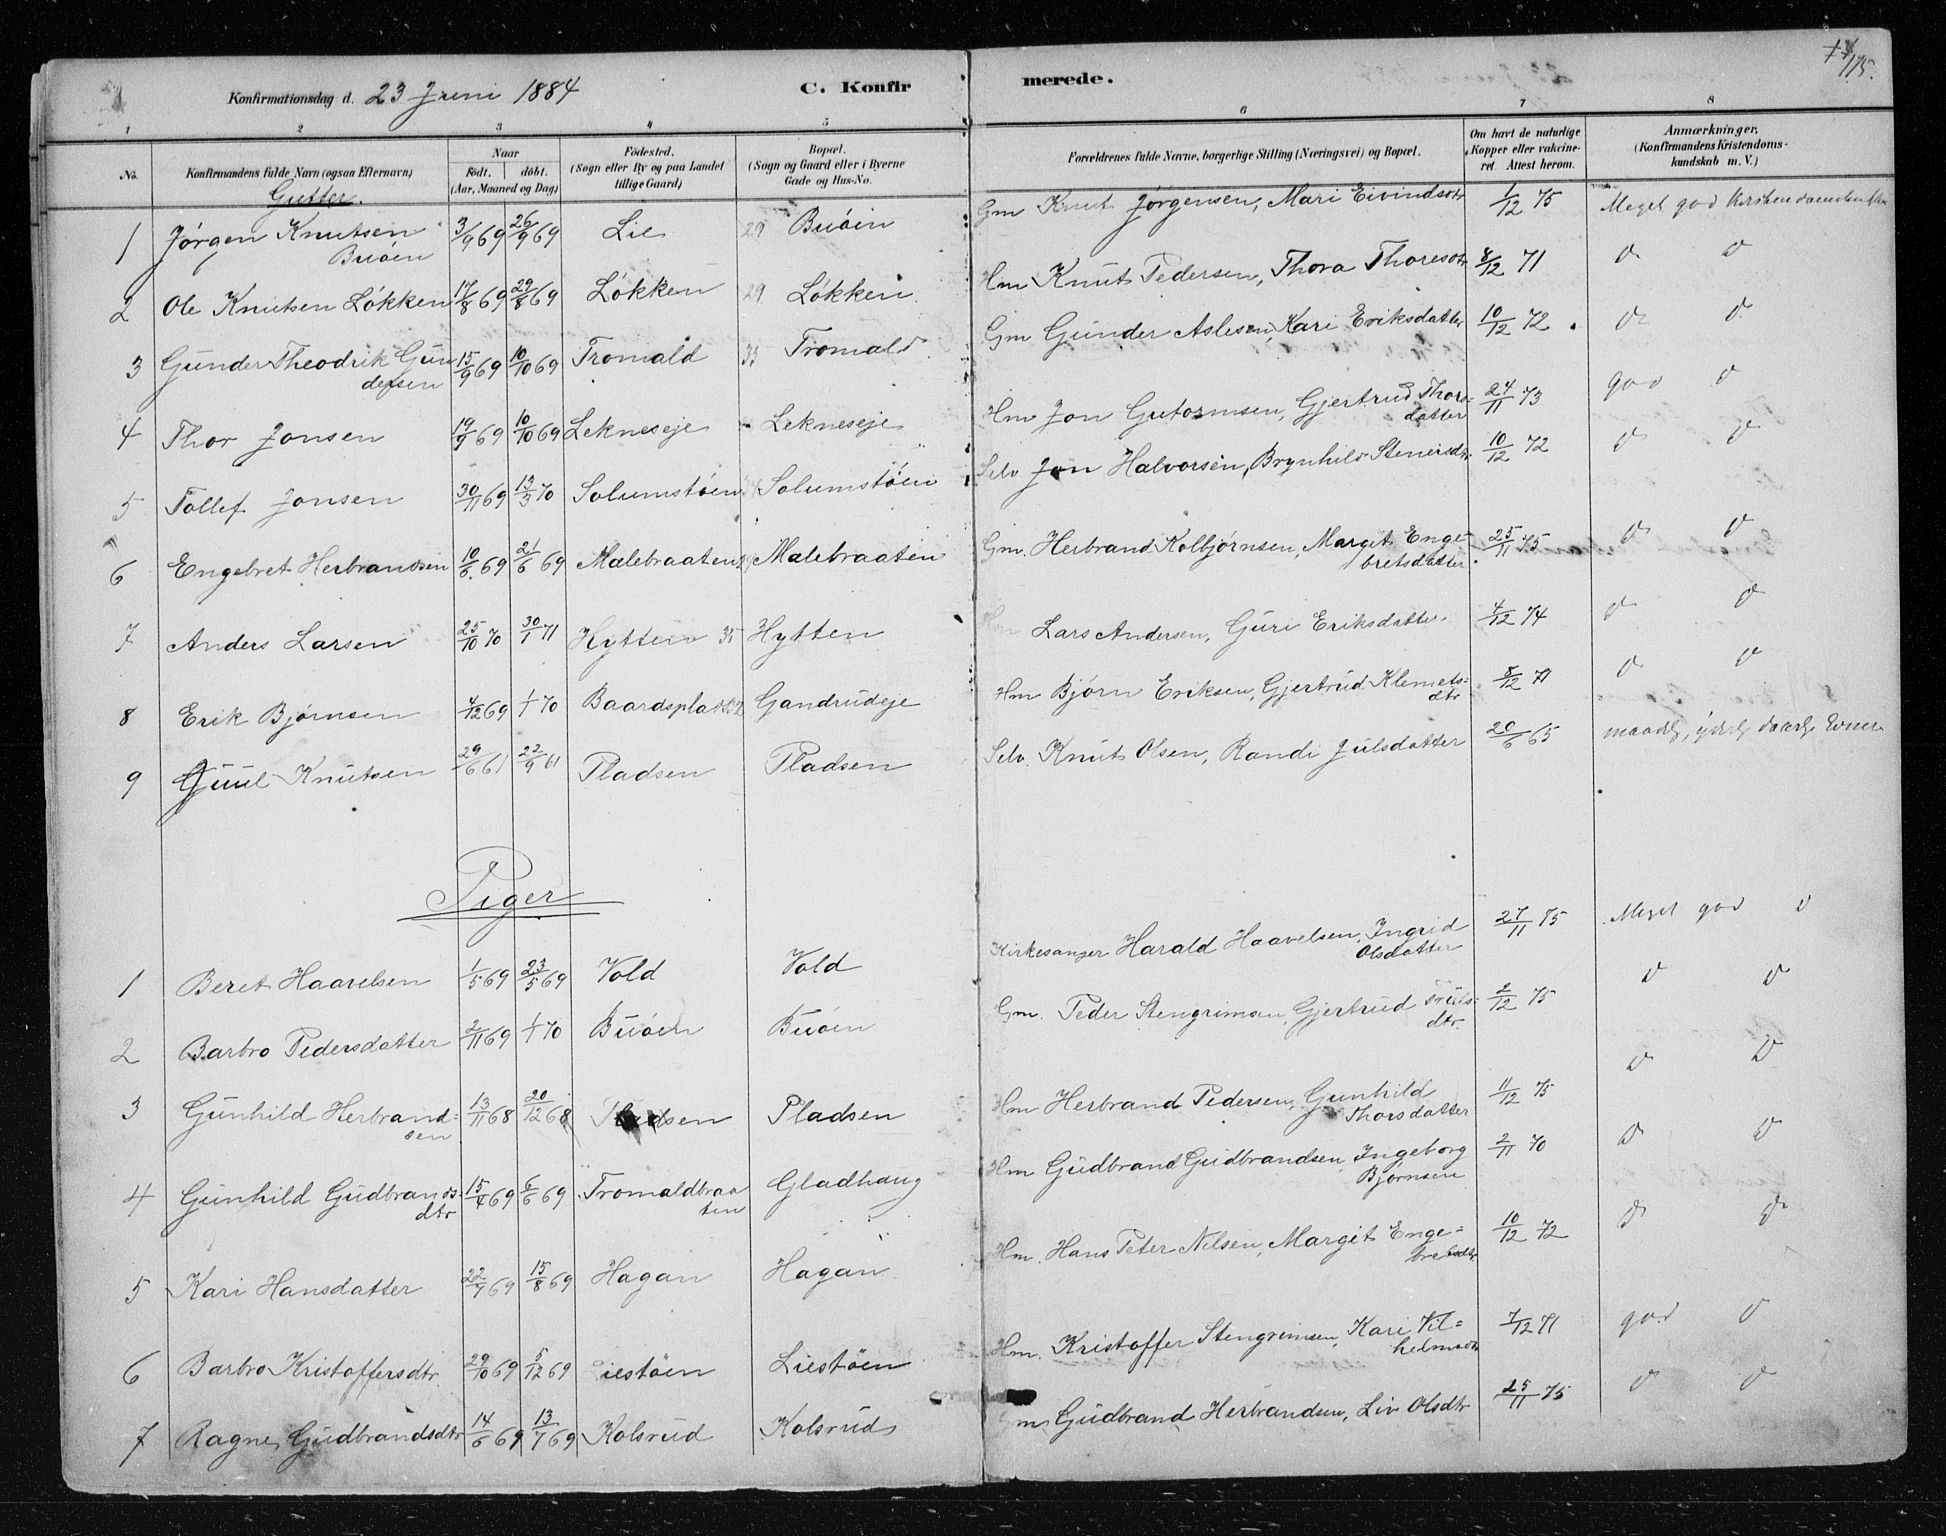 175.
Konfirmationsdag d. 23 Juni 1884 C. Konfirmerede.
1 2 3 4 5 6 7 8
No. Konfirmandens fulde Navn (ogsaa Efternavn) Naar Födt. döbt. (Aar, Maaned og Dag) Födested. (Sogn eller By og paa Landet tillige Gaard) Bopæl. (Sogn og Gaard eller i Byerne Gade og Hus-No. Forældrenes fulde Navne, borgerlige Stilling (Næringsvei) og Bopæl. Om havt de naturlige Kopper eller vakcineret. Attest herom. Anmærkninger. (Konfirmandens Kristendomskundskab m. V.)
Gutter.
1 Jørgen Knutsen Buøen 3/9 69 26/9 69 Lie 29 Buöin Gm Knut Jörgensen, Mari Eivindsdtr 1/12 75 Meget god
2 Ole Knutsen Løkken 17/8 69 29/8 69 Løkken 29 Løkken Hm Knut Pedersen, Thora Thoresdtr 8/12 71 D D
3 Gunder Theodrik Gundersen 15/9 69 10/10 69 Tromald 35 Tromald Gm Gunder Aslesen, Kari Eriksdatter 10/12 72 D D
4 Thor Jonsen 19/9 69 10/10 69 Lekneseje Lekneseje Hm Jon Gutormsen, Gjertrud Thoredatter 24/11 73 god D
5 Tollef Jonsen 30/11 69 13/3 70 Solumstöen Solumstöen Selv Jon Halvorsen, Brynhild Steinersdtr 10/12 72 D D
6 Engebret Herbrandsen 10/6 69 21/6 69 Mælebraaten Mælebraaten Gm. Herbrand Kolbjørnsen, Margit Engebretsdatter 25/11 75 D D
7 Anders Larsen 25/10 70 30/1 71 Hytten 35 Hytten Lars Andersen, Guri Eriksdatter 4/12 74 D D
8 Erik Bjørnsen 4/12 69 1/1 70 Baardsplads Gandrudeje Hm Bjørn Eriksen, Gjertrud Klemetsdtr 8/12 71 D D
9 Juul Knutsen 29/6 61 22/9 61 Pladsen Pladsen Selv. Knut Olsen, Randi Julsdatter 20/6 65 maadl,
Piger
1 Beret Haavelsen 1/5 69 23/5 69 Vold Vold Kirkesanger Harald Haavelsen, Ingrid Olsdatter 27/11 75 Meget god D
2 Barbro Pedersdatter 2/11 69 1/1 70 Buöen Buöen Gm. Peder Stengrimsen, Gjertrud Trulsdtr. 2/12 75 D D
3 Gunhild Herbrandsen 13/11 68 20/12 68 Pladsen Pladsen Hm Herbrand Pedersen, Gunhild Thorsdatter 11/12 75 D D
4 Gunhild Gudbrandsdtr 15/4 69 6/6 69 Tromaldbraaten Gladhaug Hm Gudbrand Gudbrandsen, Ingeborg Bjørnsen 2/11 70 D D
5 Kari Hansdatter 22/9 69 15/8 69 Hagan Hagan Hm. Hans Peter Nilsen, Margit Engebretsdtr 10/12 72 D D
6 Barbro Kristoffersdtr. 29/10 69 5/12 69 Liestöen Liestöen Hm. Kristoffer Stengrimsen, Kari Vilhelmsdtr 7/12 71 god D
7 Ragne Gudbrandsdtr 14/6 69 13/7 69 Kolsrud Kolsrud Gm Gudbrand Herbrandsen, Liv Olsdtr 25/11 75 D D